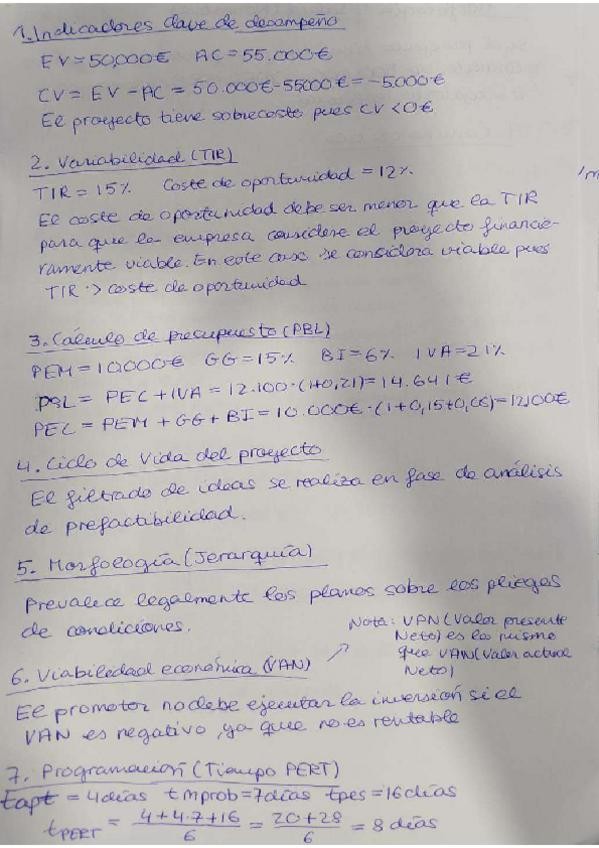 1. Indicadores clave de desempeño
EV = 50,000€ AC = 55.000€
CV = EV - AC = 50.000€ - 55000€ = -5.000€
El proyecto tiene sobrecoste pues CV < 0€
2. Variabilidad (TIR)
TIR = 15% Coste de oportunidad = 12%
El coste de oportunidad debe ser menor que la TIR
para que la empresa considere el proyecto financie-
ramente viable. En este caso se considera viable pues
TIR > coste de oportunidad
3. Cálculo de presupuesto (PBL)
PEM = 10,000€ GG = 15% BI = 6% IVA = 21%
PBL = PEC + IVA = 12.100 · (1+0,21) = 14.641€
PEC = PEM + GG + BI = 10.000€ · (1+0,15+0,06) = 12,100€
4. Ciclo de Vida del proyecto
El filtrado de ideas se realiza en fase de análisis
de prefactibilidad.
5. Morfología (Jerarquía)
Prevalece legalmente los planos sobre los pliegos
de condiciones.
Nota: VAN (Valor presente
Neto) es lo mismo
que VAN (Valor actual
Neto)
6. Viabilidad económica (VAN)
El promotor no debe ejecutar la inversión si el
VAN es negativo, ya que no es rentable
7. Programación (Tiempo PERT)
tapt = 4 días tmprob = 7 días tpes = 16 días
tPERT = 4+4·7+16 / 6 = 20+28 / 6 = 8 días